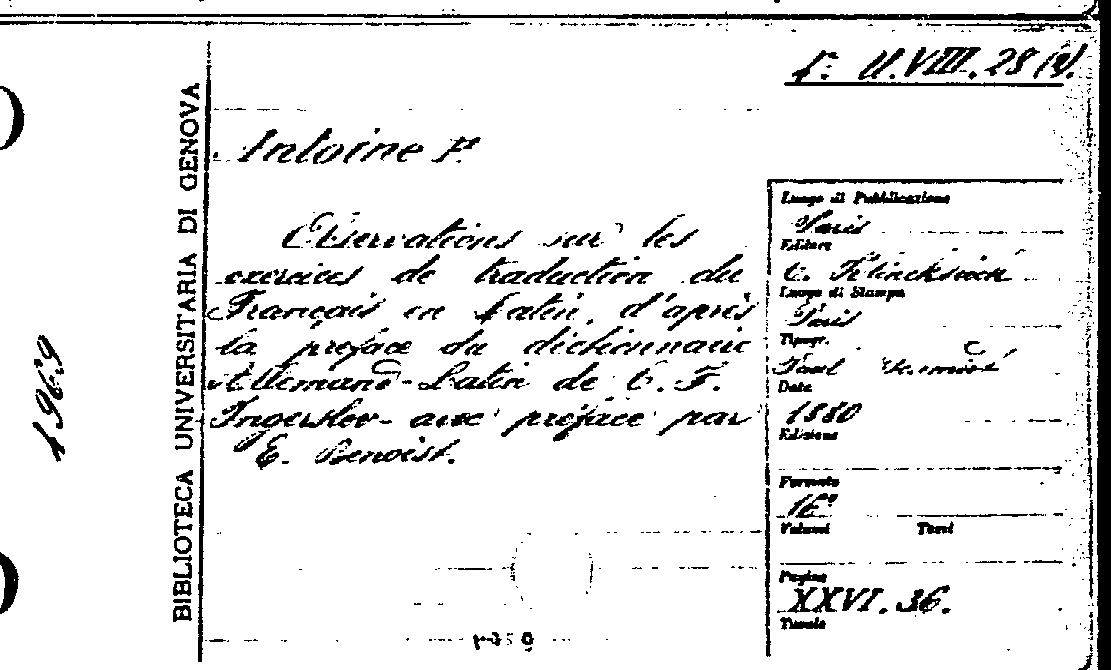 1ª. U.VIII.28(2).
Antoine F.
Observations sur les
exercices de traduction du
Français en Latin, d'après
la préface du dictionnaire
Allemand-Latin de C. F.
Ingerslev - avec préface par
E. Benoist.
BIBLIOTECA UNIVERSITARIA DI GENOVA
1969
Luogo di Pubblicazione
Paris
Editore
C. Klincksieck
Luogo di Stampa
Paris
Tipogr.
Paul
Data
1880
Edizione
Formato
16º
Volumi Tomi
Pagine
XXVI. 36.
Tavole